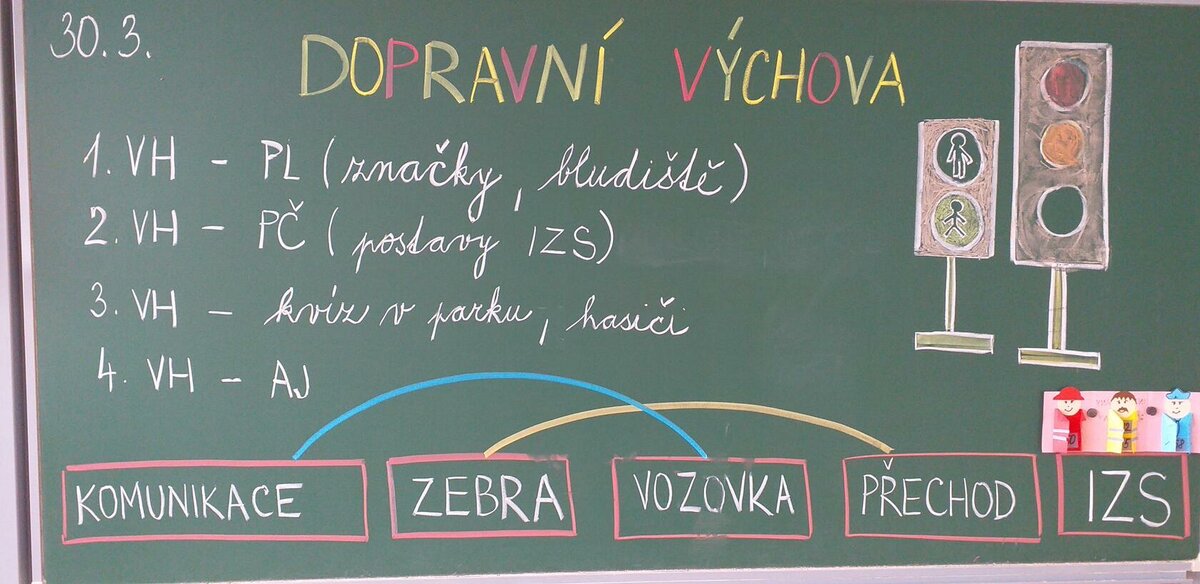 30.3.
DOPRAVNÍ VÝCHOVA
1. VH - PL (značky, bludiště)
2. VH - PČ (postavy IZS)
3. VH - kvíz v parku, hasiči
4. VH - AJ
KOMUNIKACE ZEBRA VOZOVKA PŘECHOD IZS